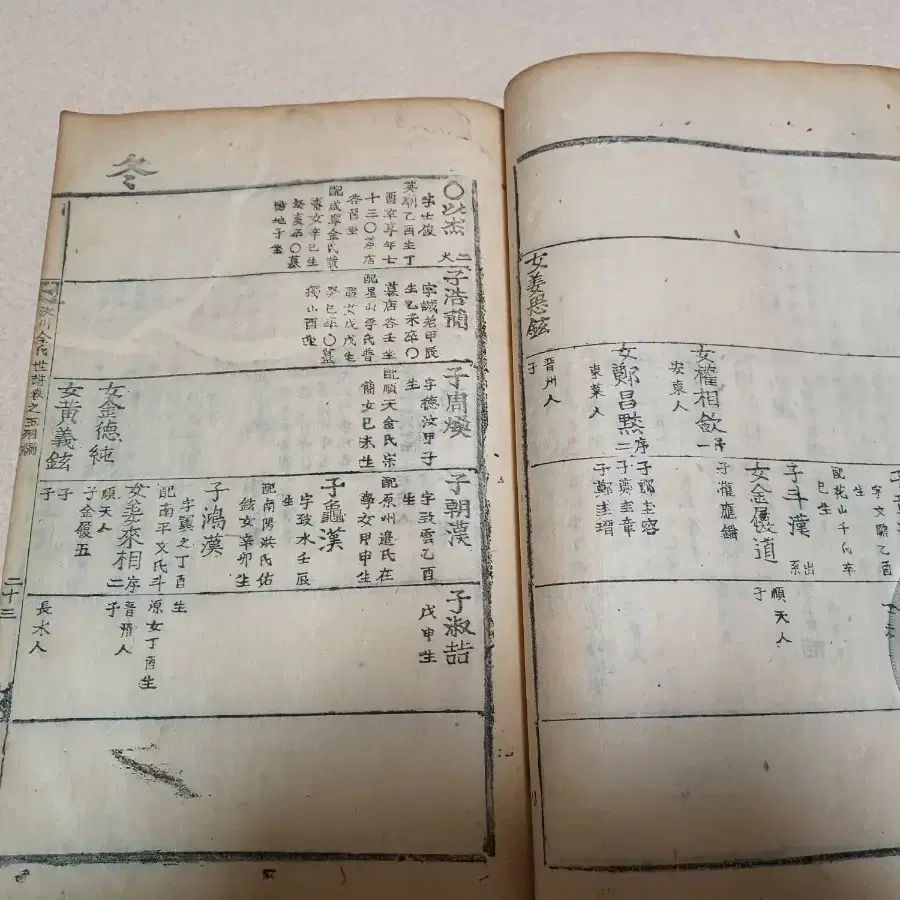 女權相欽
安東人
女鄭昌黙
東萊人
晋州人
子
配花山千氏辛
巳生
子斗漢
出系
女金履道
子鄭圭容
子鄭圭章
子鄭圭瑨
順天人
子
冬
〇以杰
字士俊
英廟乙酉生丁
酉卒享年七
十三〇墓店
谷酉坐
配咸寧金氏
女辛巳生
癸亥卒〇墓
陽地子坐
子浩簡
甲辰
生己未卒〇
墓店谷壬坐
配星山李氏普
女戊戌生
癸巳卒〇墓
獨山酉坐
子周煥
字德汶甲子
生
配順天金氏宗
簡女己未生
女金德純
女黃義鉉
子朝漢
字致雲乙酉
生
配原州邊氏在
學女甲申生
子龜漢
字致水壬辰
生
配南陽洪氏佑
鉉女辛卯生
子鴻漢
字翼之丁酉
生
配南平文氏斗
源女丁酉生
女姜來相
晉州人
子
順天人
子金履五
子
子
長水人
子淑喆
戊申生
金氏世譜卷之五
二十三